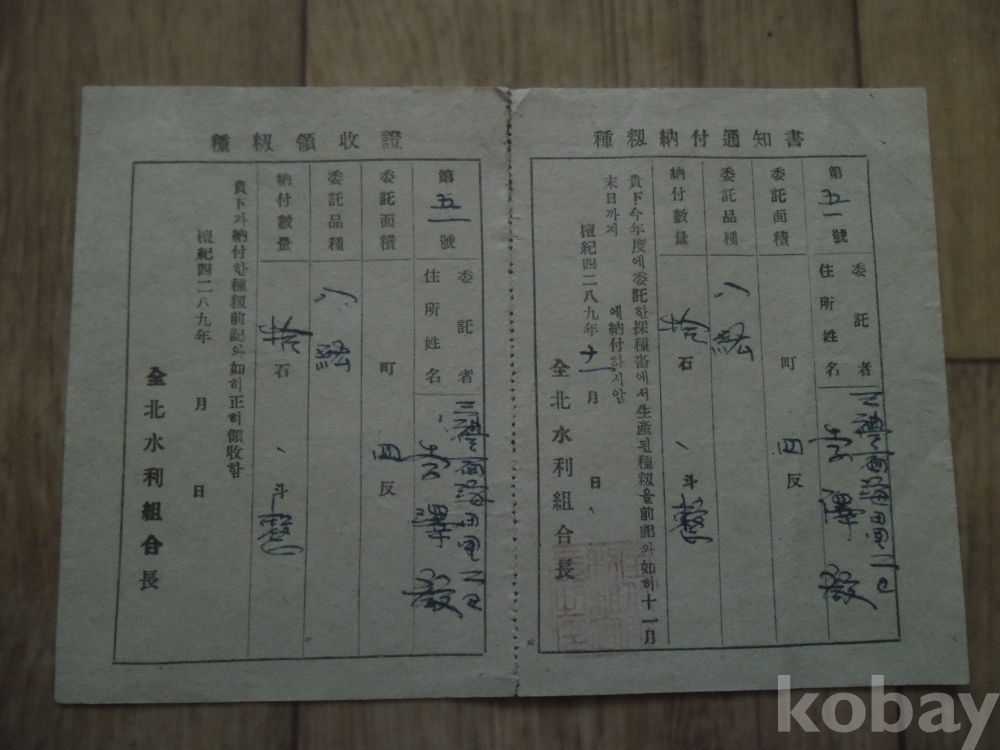 種籾納付通知書
第五一號
委託者
住所姓名
三禮面
李澤
委託面積 町 四反
委託品種 八紘
納付數量 拾石 斗
貴下今年度에委託한採種畓에서生產된種籾을前記와如히十一月
末日까지 에納付하시압
檀紀四二八九年十一月 日
全北水利組合長
種籾領收證
第五一號
委託者
住所姓名
三禮面
李澤
委託面積 町 四反
委託品種 八紘
納付數量 拾石 斗
貴下가納付한種籾前記와如히正히領收함
檀紀四二八九年 月 日
全北水利組合長
kobay